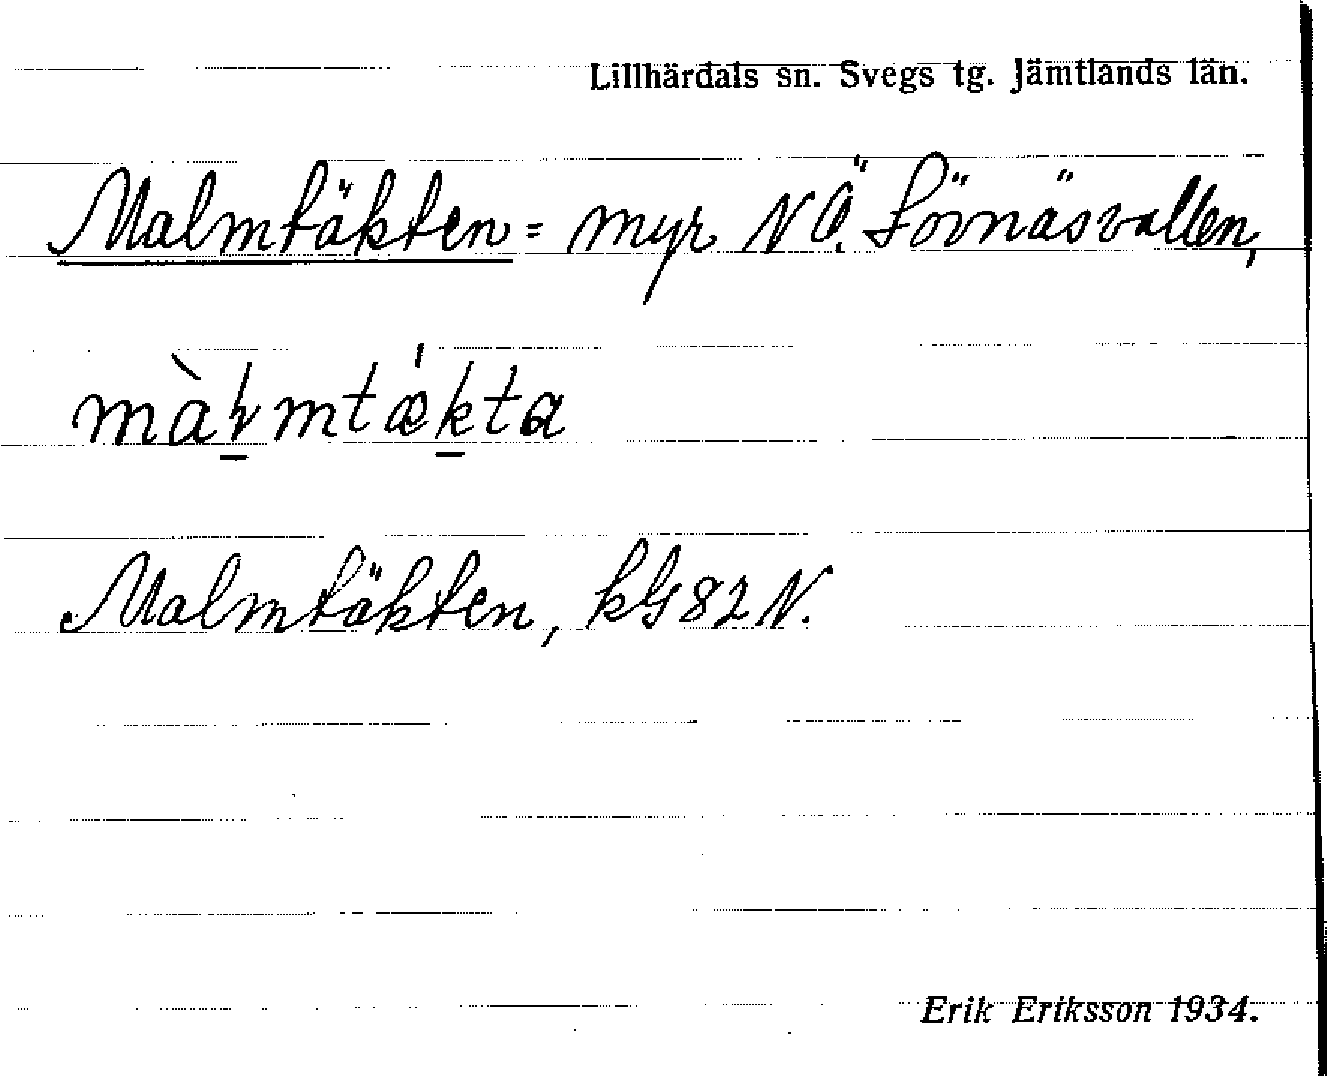 Lillhärdals sn. Svegs tg. Jämtlands län.
Malmtäkten = myr NÖ. Lövnäsvallen,
Malmtäkten, kG 82 N.
Erik Eriksson 1934.